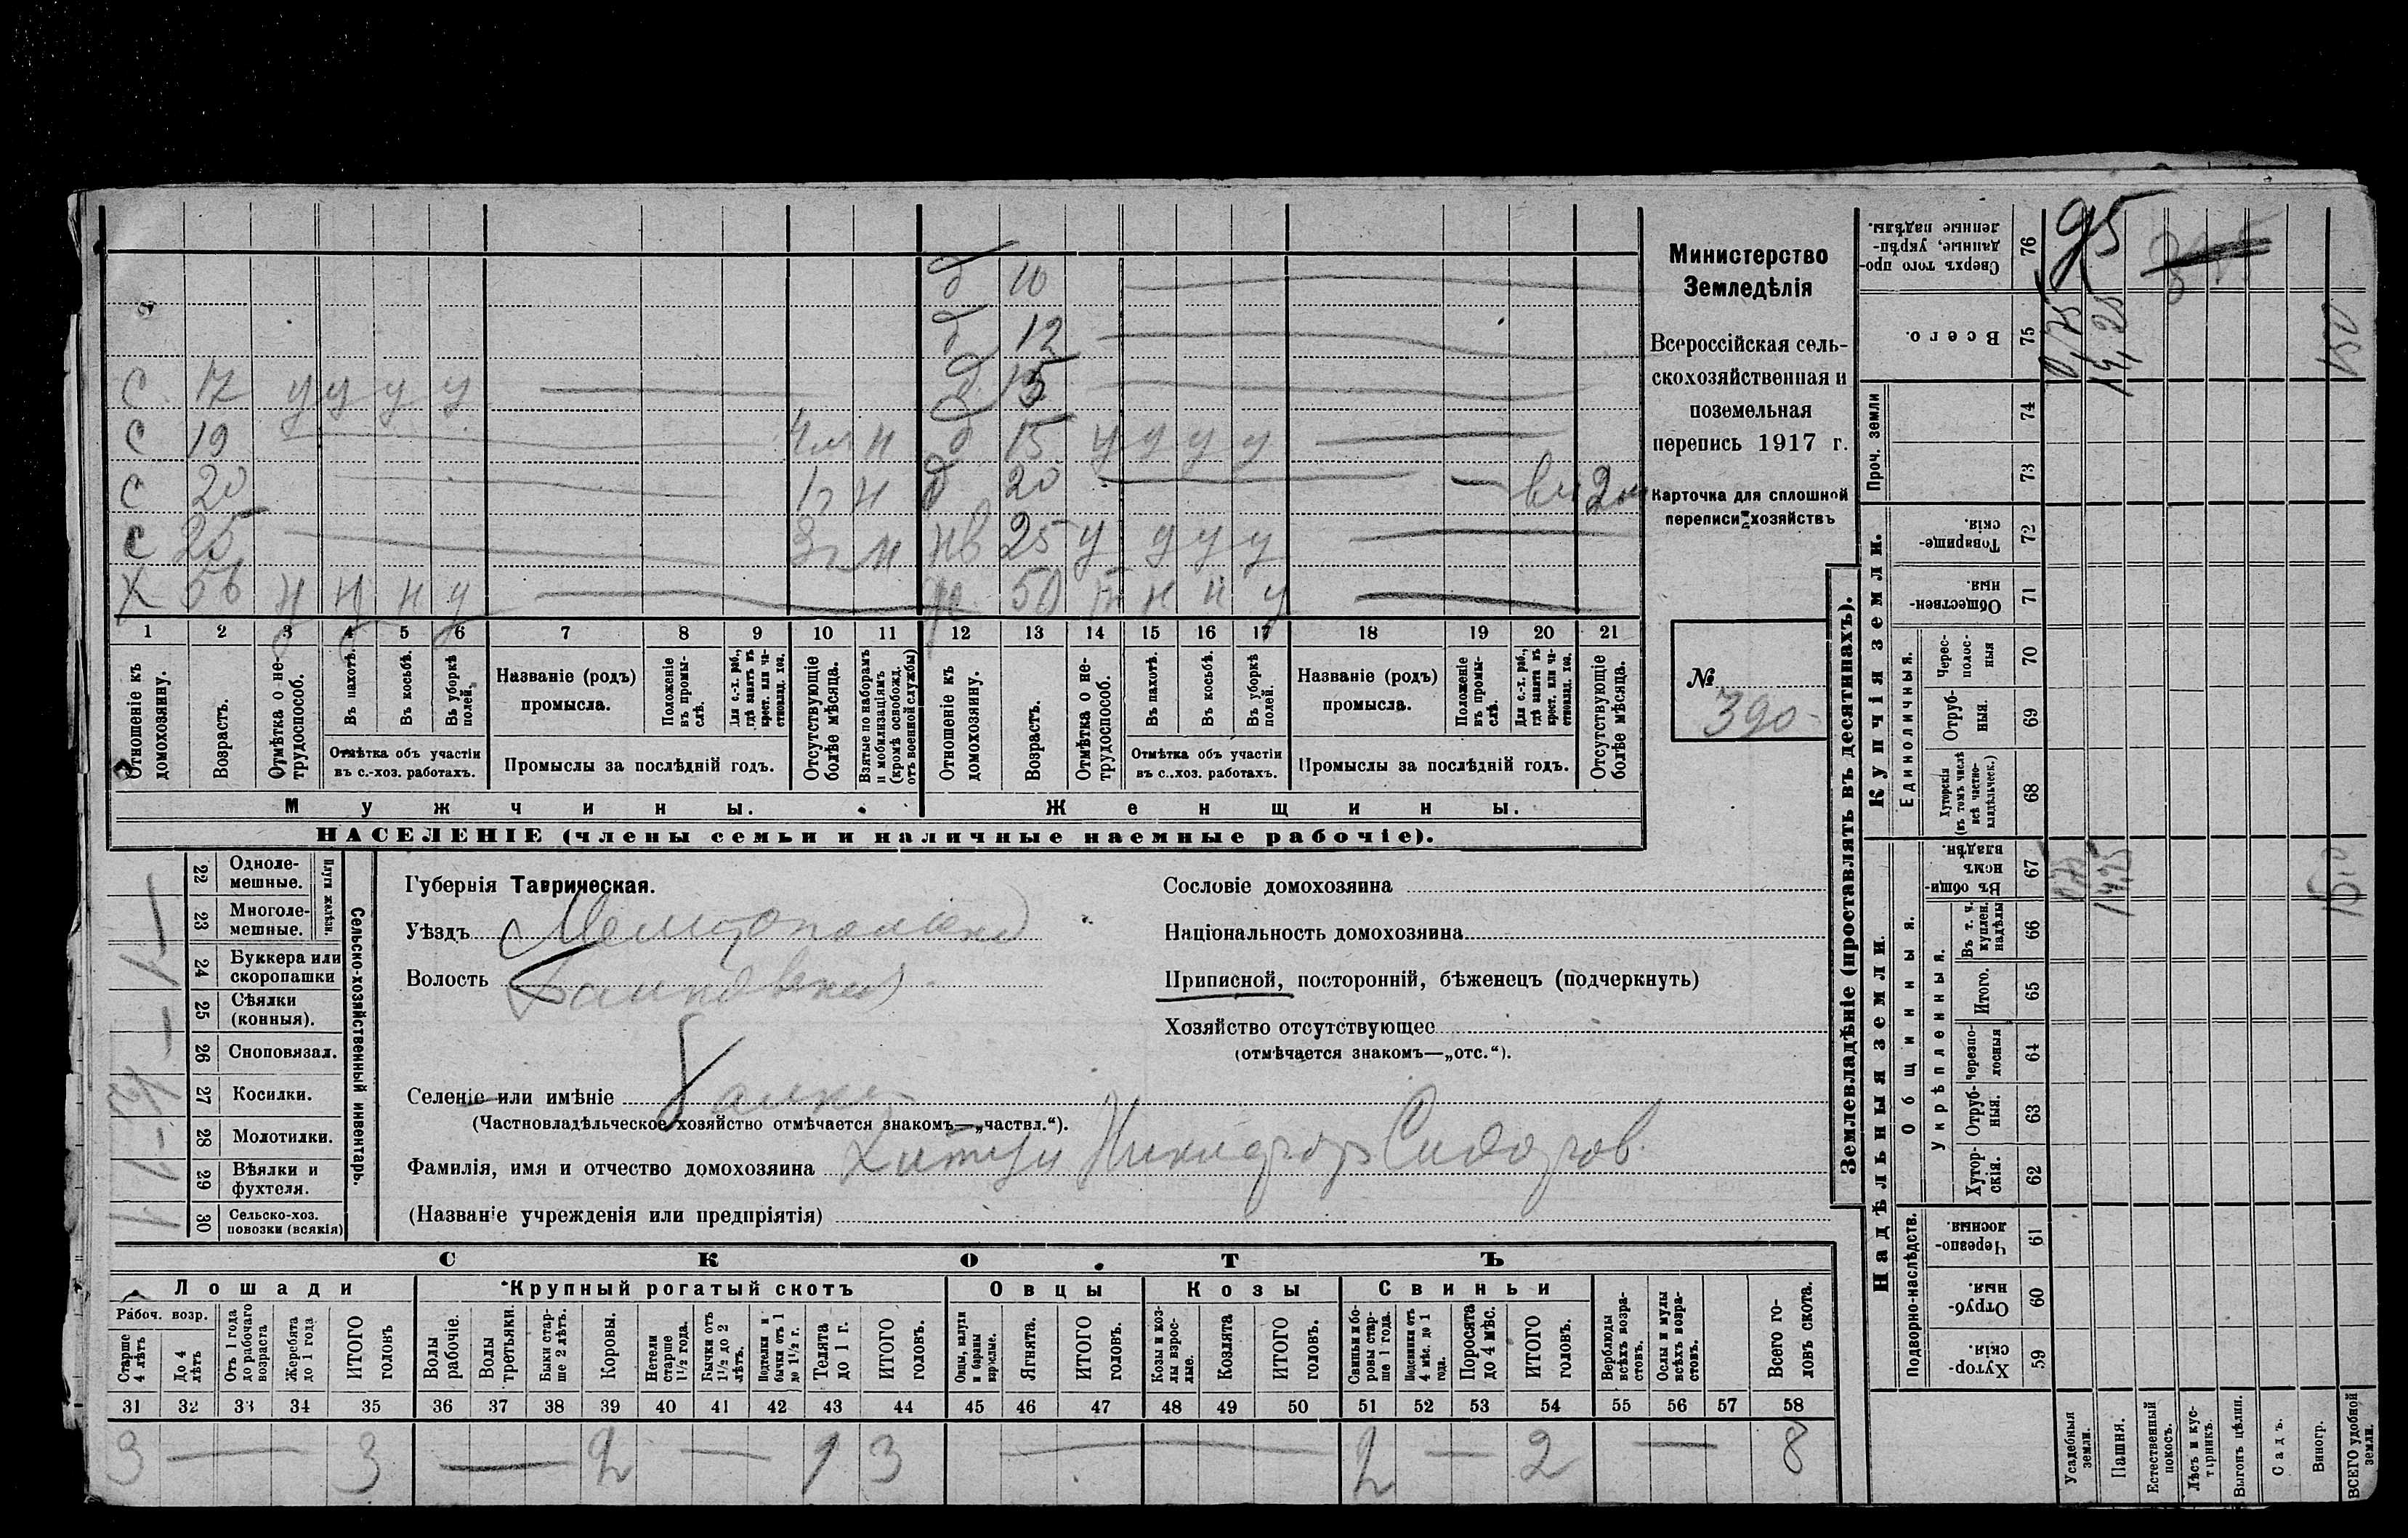 д 10
д 12
С 17 у у у у — д 13
С 19 — 4 м н д 15 у у у у —
С 20 — 1 г н д 20 — — 2 м
С 25 — 3 г н нв 25 у у у у —
Х 56 н н у — ж 50 н н у —
1 2 3 4 5 6 7 8 9 10 11 12 13 14 15 16 17 18 19 20 21
Отношеніе къ домохозяину.
Возрастъ.
Отмѣтка о не-трудоспособ.
Въ пахотѣ.
Въ косьбѣ.
Въ уборкѣ полей.
Отмѣтка объ участіи
въ с.-хоз. работахъ.
Названіе (родъ)
промысла.
Положеніе въ промы-слѣ.
Для с.-х. раб., гдѣ занятъ въ крест. или ча-стновлад. хоз.
Промыслы за послѣдній годъ.
Отсутствующіе болѣе мѣсяца.
Взятые по наборамъ и мобилизаціямъ (кромѣ освобожд. отъ военной службы)
Отношеніе къ домохозяину.
Возрастъ.
Отмѣтка о не-трудоспособ.
Въ пахотѣ.
Въ косьбѣ.
Въ уборкѣ полей.
Отмѣтка объ участіи
въ с..хоз. работахъ.
Названіе (родъ)
промысла.
Положеніе въ промы-слѣ.
Для с.-х. раб., гдѣ занята въ крест. или ча-стновлад. хоз.
Промыслы за послѣдній годъ.
Отсутствующіе болѣе мѣсяца.
Мужчины.
Женщины.
НАСЕЛЕНІЕ (члены семьи и наличные наемные рабочіе).
Министерство
Земледѣлія
Всероссійская сель-
скохозяйственная и
поземельная
перепись 1917 г.
Карточка для сплошной
переписи хозяйствъ
№
390
22 Одноле-мешные.
23 Многоле-мешные.
Плуги желѣзн.
24 Буккера или скоропашки
25 Сѣялки (конныя).
26 Сноповязал.
27 Косилки.
28 Молотилки.
29 Вѣялки и фухтеля.
30 Сельско-хоз. повозки (всякія)
Сельско-хозяйственный инвентарь.
Губернія Таврическая.
Уѣздъ Мелитопольскій
Волость Балковская
Селеніе или имѣніе Балки
(Частновладѣльческое хозяйство отмѣчается знакомъ—„частвл.“).
Фамилія, имя и отчество домохозяина Никифор Сидоров
(Названіе учрежденія или предпріятія)
Сословіе домохозяина
Національность домохозяина
Приписной, посторонній, бѣженецъ (подчеркнуть)
Хозяйство отсутствующее
(отмѣчается знакомъ—„отс.“).
СКОТЪ
Лошади
Рабоч. возр.
Старше 4 лѣтъ
До 4 лѣтъ
Отъ 1 года до рабочаго возраста
Жеребята до 1 года
ИТОГО головъ
Крупный рогатый скотъ
Волы рабочіе.
Волы третьяки.
Быки стар-ше 2 лѣтъ.
Коровы.
Нетели старше 1½ года.
Бычки отъ 1½ до 2 лѣтъ.
Подтелки и бычки отъ 1 до 1½ г.
Телята до 1 г.
ИТОГО головъ.
Овцы
Овцы, валухи и бараны взрослые.
Ягнята.
ИТОГО головъ.
Козы
Козы и коз-лы взрос-лые.
Козлята
ИТОГО головъ.
Свиньи
Свиньи и бо-ровы стар-ше 1 года.
Подсвинки отъ 4 мѣс. до 1 года.
Поросята до 4 мѣс.
ИТОГО головъ.
Верблюды всѣхъ возра-стовъ.
Ослы и мулы всѣхъ возра-стовъ.
Всего го-ловъ скота.
31 32 33 34 35 36 37 38 39 40 41 42 43 44 45 46 47 48 49 50 51 52 53 54 55 56 57 58
3 — 3 — 2 — 1 3 — 2 — 2 — 8
Землевладѣніе (проставлять въ десятинахъ).
Надѣльныя земли.
Подворно-наслѣдств.
Хутор-скія. 59
Отруб-ныя. 60
Черезпо-лосныя. 61
Общинныя.
Укрѣпленныя.
Хутор-скія. 62
Отруб-ныя. 63
Черезпо-лосныя 64
Итого. 65
Въ т. ч. куплен. надѣлы 66
Въ общи-номъ владѣн. 67
Купчія земли.
Единоличныя.
Хуторскія (въ томъ числѣ всѣ частно-владѣльческ.) 68
Отруб-ныя. 69
Черес-полос-ныя 70
Обществен-ныя. 71
Товарище-скія. 72
Проч. земли
73
74
Всего. 75
Сверхъ того про-данные, укрѣп-ленные надѣлы. 76
Усадебныя земли.
Пашня.
Естественный покосъ.
Лѣсъ и кус-тарникъ.
Выгонъ цѣлин.
Садъ.
Виногр.
ВСЕГО удобной земли.
0,75
14,25
150
95